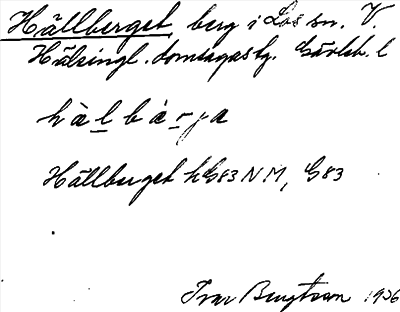 Hällberget, berg i Los sn. V.
Hälsingl. domsagas tg. Gävleb. l
hàlbárja
Hällberget hG83NM, G83
Ivar Bengtsson 1936